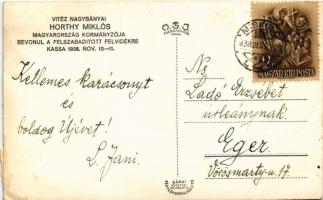 VITÉZ NAGYBÁNYAI
HORTHY MIKLÓS
MAGYARORSZÁG KORMÁNYZÓJA
BEVONUL A FELSZABADITOTT FELVIDÉKRE
KASSA 1938. NOV. 10—11.
Kellemes karácsonyt
és
boldog Újévet!
L. Jani.
MAGYAR KIR. POSTA
Ns
Ladó Erzsébet
urleánynak.
Eger.
Vörösmarty-u. 17.